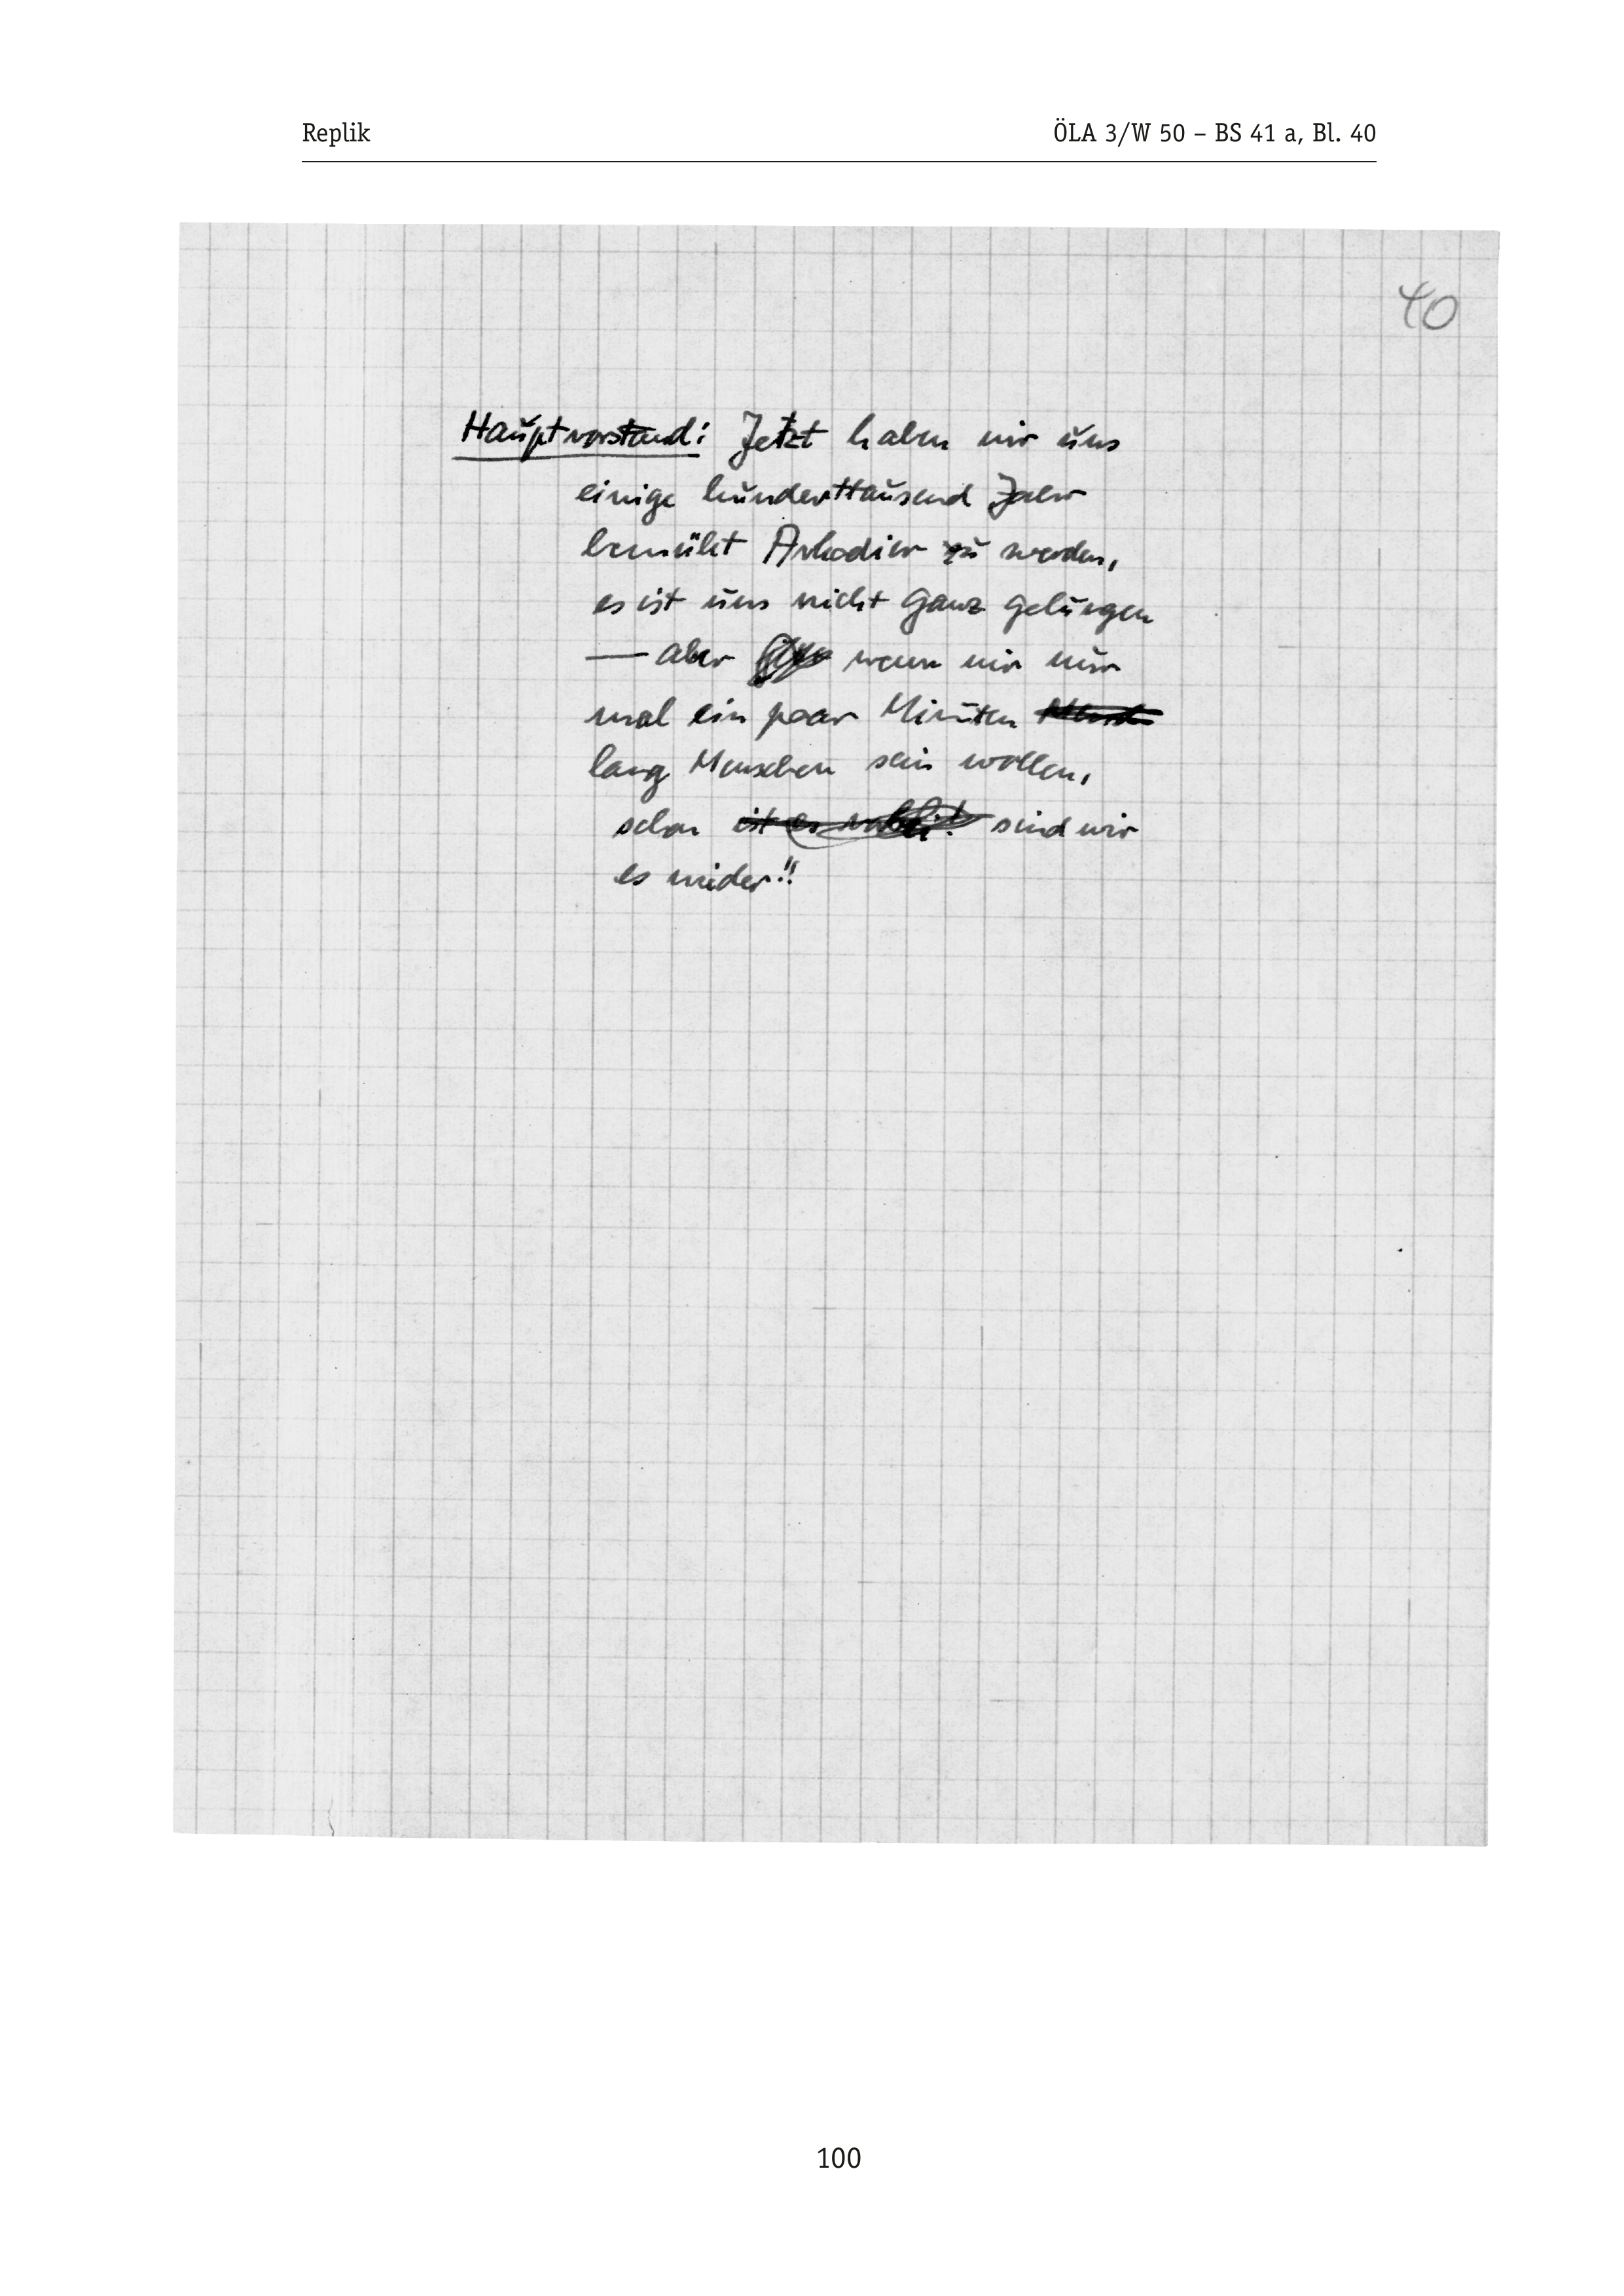 Replik ÖLA 3/W 50 – BS 41 a, Bl. 40
40
Hauptvorstand: Jetzt haben wir uns
einige hunderttausend Jahr
bemüht Arkadier zu werden,
es ist uns nicht ganz gelungen
— aber wenn wir nur
mal ein paar Minuten
lang Menschen sein wollen,
schon ist es sind wir
es wider!!
100